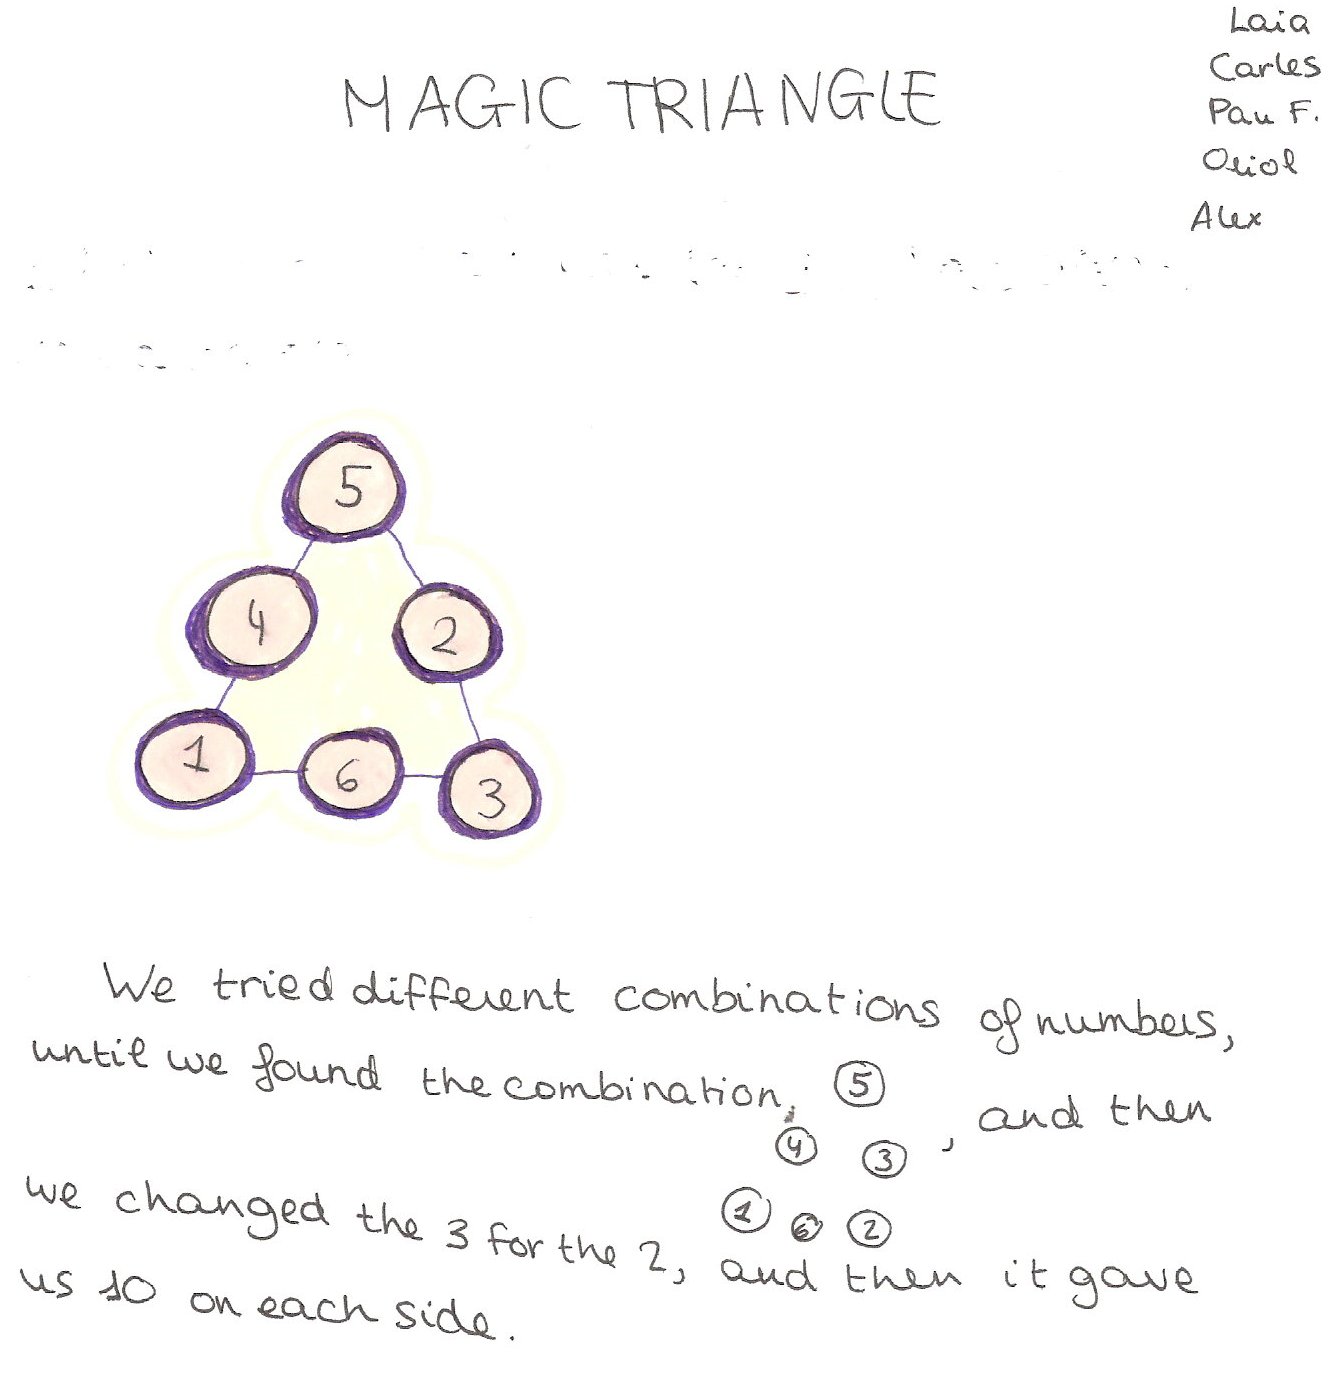 Laia
Carles
Pau F.
Oriol
Alex
MAGIC TRIANGLE
5
4 2
1 6 3
We tried different combinations of numbers,
until we found the combination, 5
4 3 , and then
1 6 2
we changed the 3 for the 2, and then it gave
us 10 on each side.